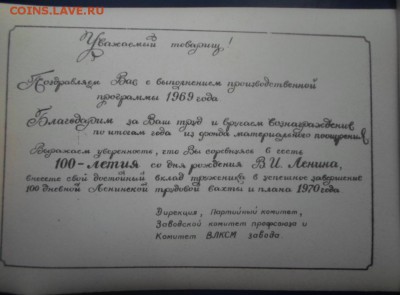 COINS.LAVE.RU
Уважаемый товарищ!
Поздравляем Вас с выполнением производственной
программы 1969 года
Благодарим за Ваш труд и вручаем вознаграждение
по итогам года из фонда материального поощрения
Выражаем уверенность, что Вы соревнуясь в честь
100-летия со дня рождения В.И. Ленина,
внесете свой достойный вклад труженика в успешное завершение
100 дневной Ленинской трудовой вахты и плана 1970 года
Дирекция, Партийный комитет,
Заводской комитет профсоюза и
Комитет ВЛКСМ завода.